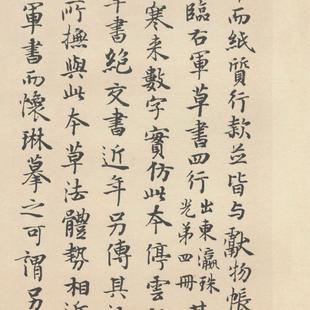 而紙質行款並皆与獻物帳
臨右軍草書四行出東瀛珠光第四冊其
寒来數字實仿此本停雲
草書絕交書近年另傳其
所撫與此本草法體勢相近
軍書而懷琳摹之可謂另